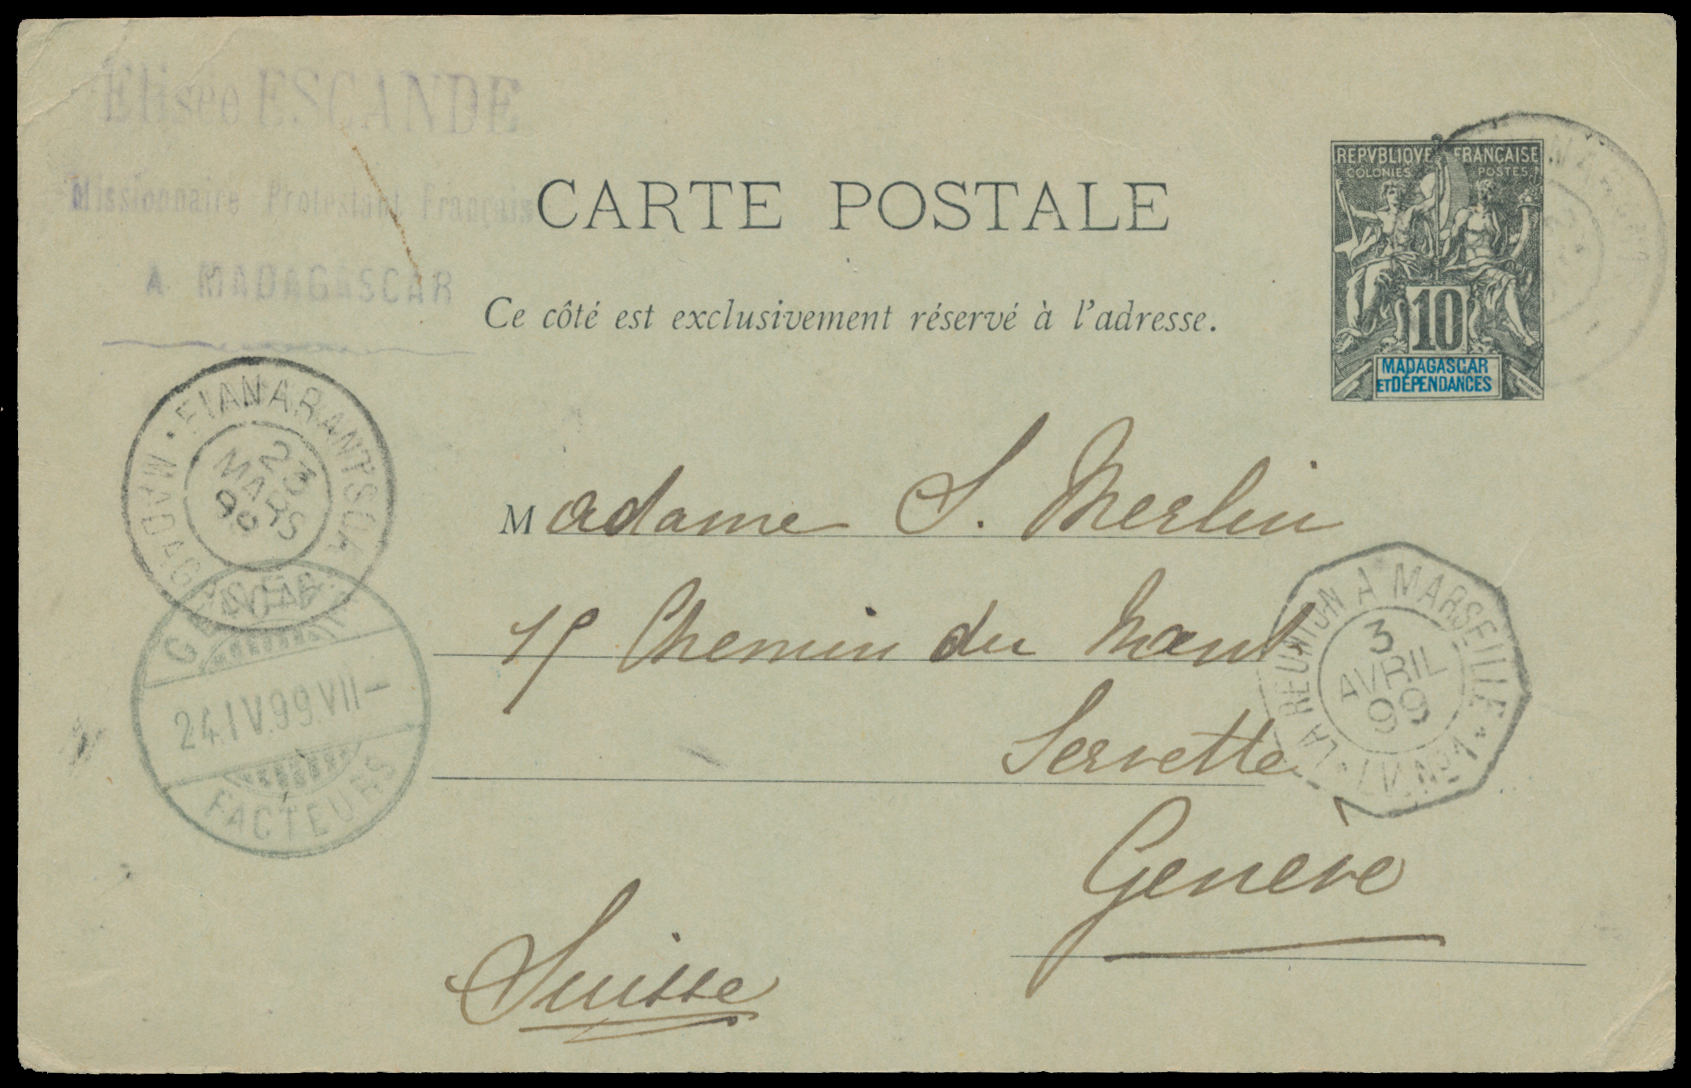 Elisée ESCANDE
Missionnaire Protestant Français
A MADAGASCAR
CARTE POSTALE
Ce côté est exclusivement réservé à l'adresse.
REPVBLIQVE FRANÇAISE
COLONIES POSTES
10
MADAGASCAR
ET DÉPENDANCES
FIANARANTSOA
23
MARS
99
MADAGASCAR
Madame S. Merlin
15 Chemin du
Servette
Genève
Suisse
LA REUNION A MARSEILLE
3
AVRIL
99
L.V. Nº1
GENÈVE
24.IV.99.VII—
FACTEURS